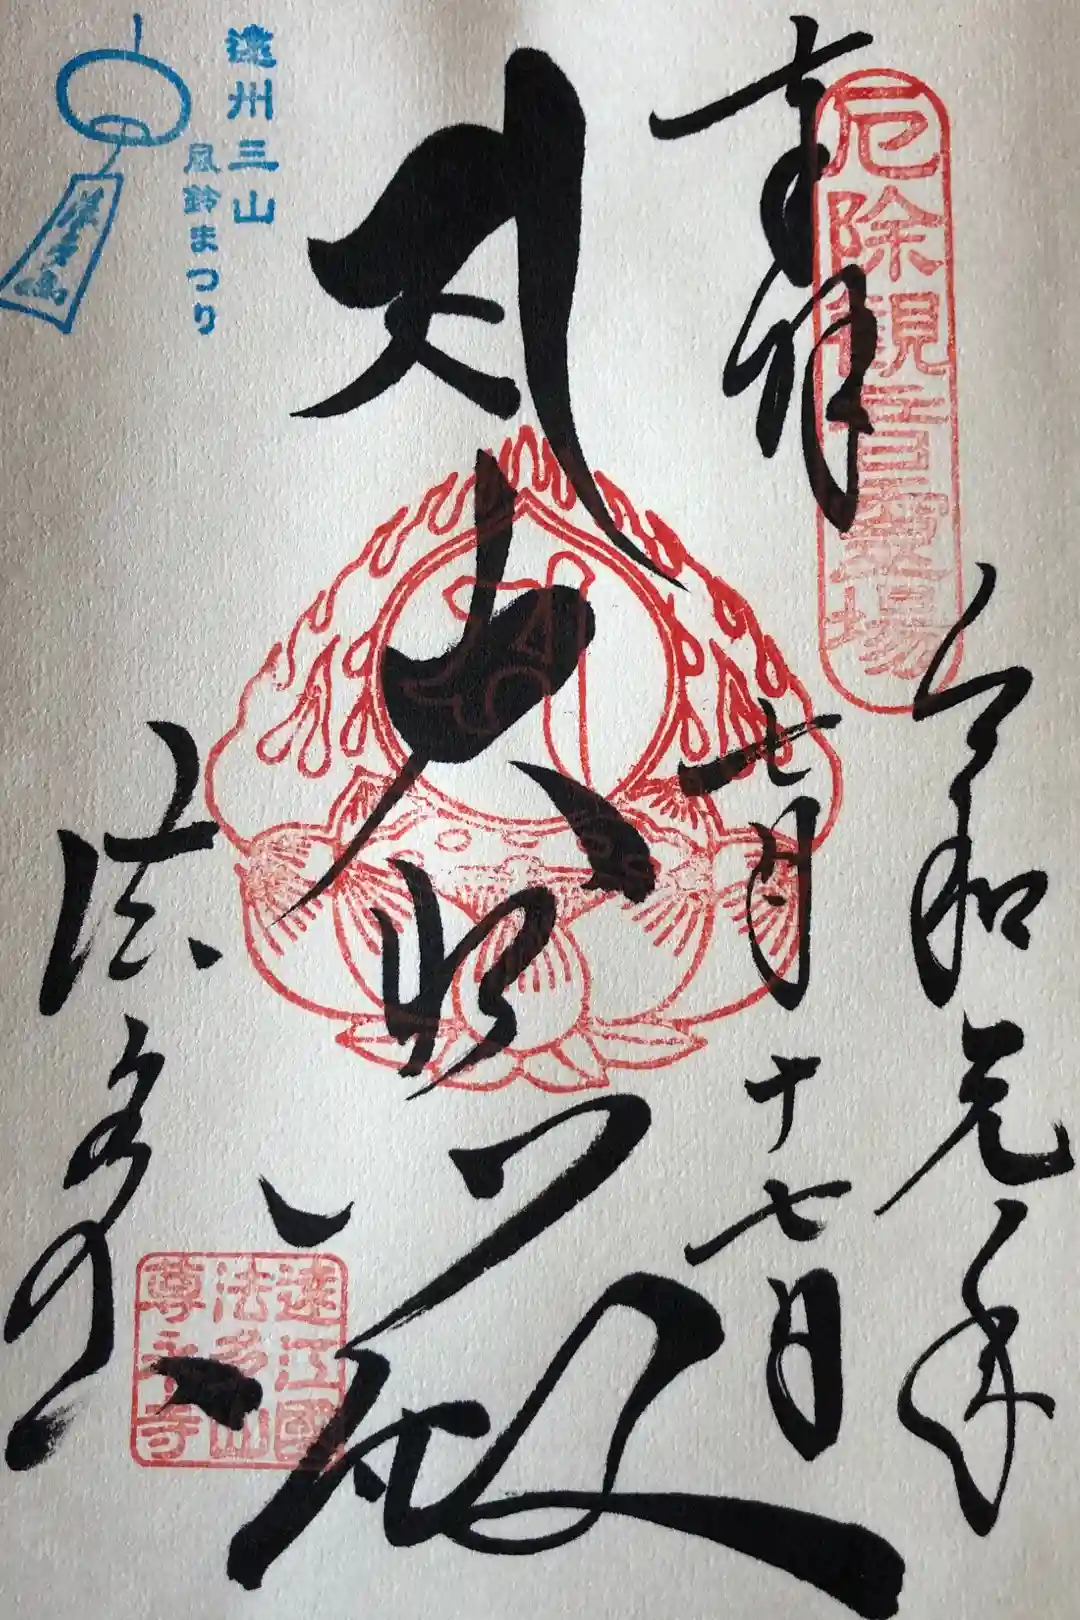 奉拝
厄除観音霊場
令和元年
七月十七日
大悲殿
法多山
遠江國
法多山
尊永寺
遠州三山
風鈴まつり